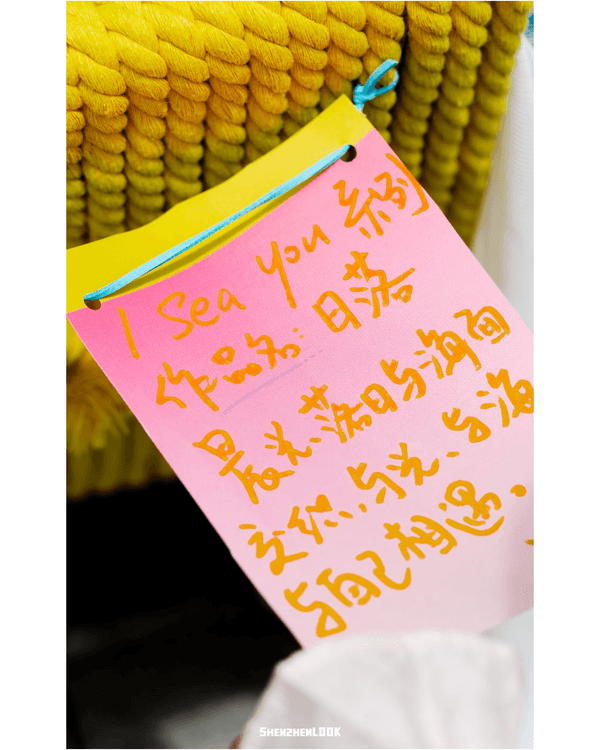 I Sea You 系列
作品名:日落
晨光、落日与海面
交织,与光、与海
与自己相遇.
SHENZHENLOOK